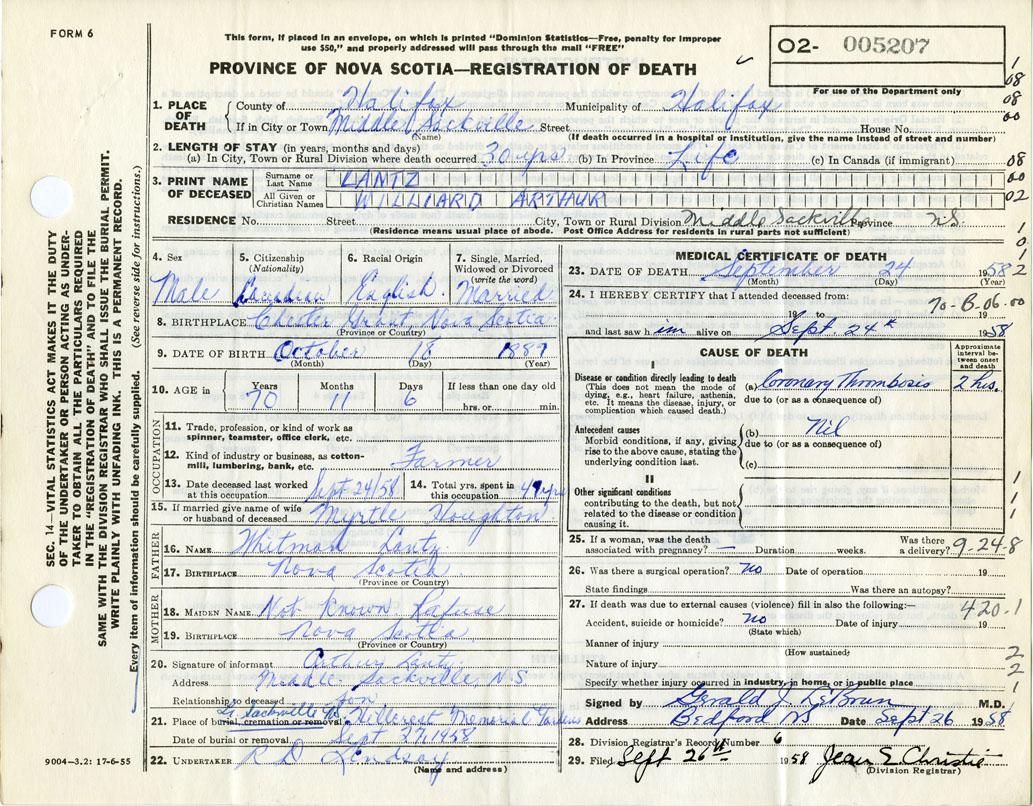 FORM 6
This form, if placed in an envelope, on which is printed "Dominion Statistics—Free, penalty for improper
use $50," and properly addressed will pass through the mail "FREE"
O2- 005207
For use of the Department only
PROVINCE OF NOVA SCOTIA—REGISTRATION OF DEATH
1. PLACE OF DEATH County of Halifax Municipality of Halifax
If in City or Town Middle Sackville Street House No.
(Name) (If death occurred in a hospital or institution, give the name instead of street and number)
2. LENGTH OF STAY (in years, months and days)
(a) In City, Town or Rural Division where death occurred 30 yrs (b) In Province Life (c) In Canada (if immigrant)
3. PRINT NAME OF DECEASED Surname or Last Name LANTZ
All Given or Christian Names WILLIARD ARTHUR
RESIDENCE No. Street City, Town or Rural Division Middle Sackville Province N.S.
(Residence means usual place of abode. Post Office Address for residents in rural parts not sufficient)
4. Sex Male
5. Citizenship (Nationality) Canadian
6. Racial Origin English
7. Single, Married, Widowed or Divorced (write the word) Married
8. BIRTHPLACE Chester Grant, Nova Scotia
(Province or Country)
9. DATE OF BIRTH October 18 1887
(Month) (Day) (Year)
10. AGE in Years 70 Months 11 Days 6 If less than one day old
hrs. or min.
OCCUPATION
11. Trade, profession, or kind of work as
spinner, teamster, office clerk, etc.
12. Kind of industry or business, as cotton-
mill, lumbering, bank, etc. Farmer
13. Date deceased last worked at this occupation Sept 24/58
14. Total yrs. spent in this occupation 49 yrs
15. If married give name of wife or husband of deceased Myrtle Houghton
FATHER
16. NAME Whitman Lantz
17. BIRTHPLACE Nova Scotia
(Province or Country)
MOTHER
18. MAIDEN NAME Not Known Rafuse
19. BIRTHPLACE Nova Scotia
(Province or Country)
20. Signature of informant Arthur Lantz
Address Middle Sackville, N.S
Relationship to deceased Son
21. Place of burial, cremation or removal Sackville NS. Hillcrest Memorial Gardens
Date of burial or removal Sept 27, 1958
22. UNDERTAKER R D Lindsay
(Name and address)
9004—3.2: 17-6-55
MEDICAL CERTIFICATE OF DEATH
23. DATE OF DEATH September 24 1958
(Month) (Day) (Year)
24. I HEREBY CERTIFY that I attended deceased from:
70-B-06.00
19 to 19
and last saw h im alive on Sept 24th 1958
CAUSE OF DEATH
Approximate interval between onset and death
I
Disease or condition directly leading to death
(This does not mean the mode of
dying, e.g., heart failure, asthenia,
etc. It means the disease, injury, or
complication which caused death.)
(a) Coronary Thrombosis 2 hrs.
due to (or as a consequence of)
Antecedent causes
Morbid conditions, if any, giving
rise to the above cause, stating the
underlying condition last.
(b) Nil
due to (or as a consequence of)
(c)
II
Other significant conditions
contributing to the death, but not
related to the disease or condition
causing it.
25. If a woman, was the death
associated with pregnancy? — Duration weeks. Was there a delivery?
9-24-8
26. Was there a surgical operation? No Date of operation 19
State findings Was there an autopsy?
27. If death was due to external causes (violence) fill in also the following:—
420-1
Accident, suicide or homicide? No Date of injury 19
(State which)
Manner of injury
(How sustained)
Nature of injury
Specify whether injury occurred in industry, in home, or in public place
Signed by Gerald J. LeBrun M.D.
Address Bedford NS Date Sept 26 1958
28. Division Registrar's Record Number 6
29. Filed Sept 26th 1958 Jean E Christie
(Division Registrar)
SEC. 14—VITAL STATISTICS ACT MAKES IT THE DUTY
OF THE UNDERTAKER OR PERSON ACTING AS UNDER-
TAKER TO OBTAIN ALL THE PARTICULARS REQUIRED
IN THE "REGISTRATION OF DEATH" AND TO FILE THE
SAME WITH THE DIVISION REGISTRAR WHO SHALL ISSUE THE BURIAL PERMIT.
WRITE PLAINLY WITH UNFADING INK. THIS IS A PERMANENT RECORD.
Every item of information should be carefully supplied. (See reverse side for instructions.)
1
08
08
00
08
00
02
1
0
1
2
1
1
1
2
2
1